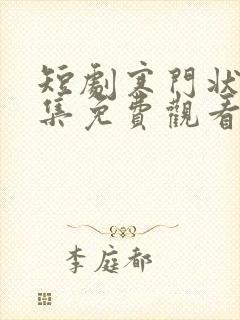 短劇寒門狀
集免費觀看
李庭都